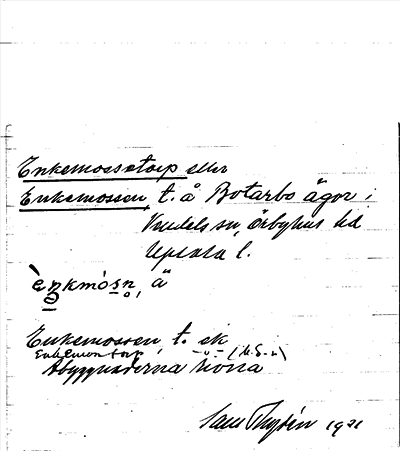 Enkemossetorp eller
Enkemossen, t. å Botarbo ägor i
Vendels sn, Örbyhus hd
Upsala l.
ènkmósn, ä
Enkemossen, t. ek
Enkemontorp (u.s.a)
Abyggnaderna
1921